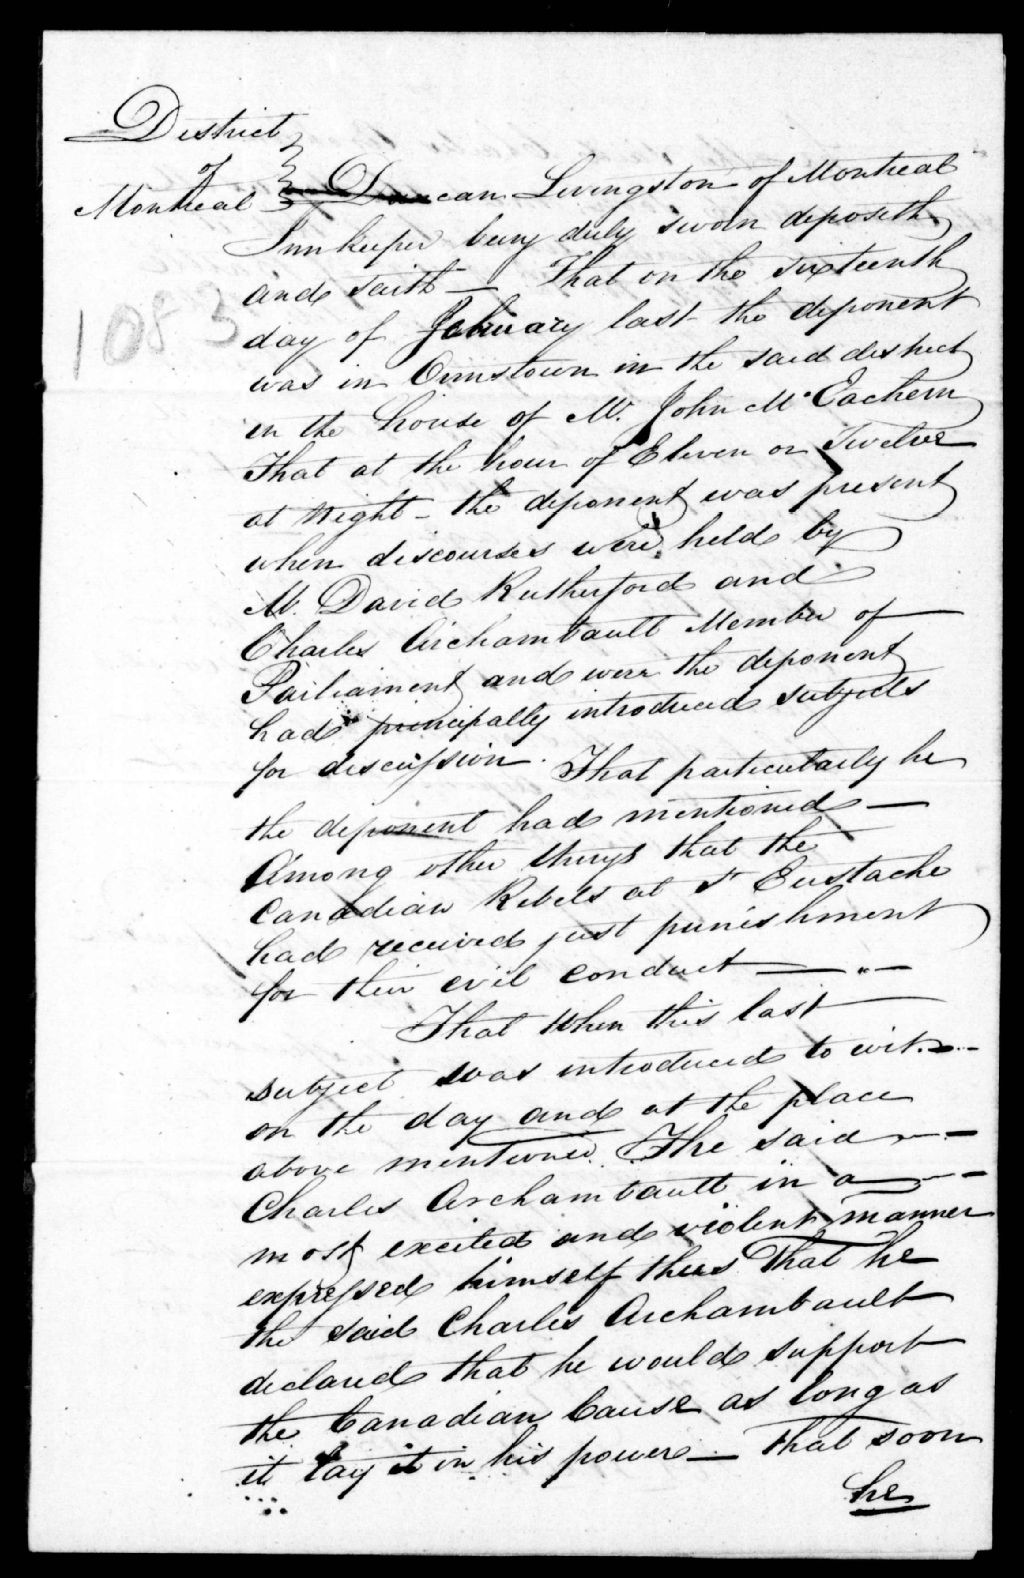 District
of
Montreal Duncan Livingston of Montreal
Innkeeper being duly sworn deposeth
and saith — That on the sixteenth
1083
day of February last the deponent
was in Ormstown in the said district
in the house of Mr. John McEachern
That at the hour of Eleven or Twelve
at Night - the deponent was present
when discourses were held by
Mr. David Rutherford and
Charles Archambault Member of —
Parliament and were the deponent
had principally introduced subjects
for discussion. That particularly he
the deponent had mentioned —
Among other things that the
Canadian Rebels at St Eustache
had received just punishment
for their evil conduct — " —
That when this last —
subject was introduced to wit. —
on the day and at the place
above mentioned. The said —
Charles Archambault in a —
most excited and violent manner
expressed himself thus That he
the said Charles Archambault
declared that he would support
the Canadian Cause as long as
it lay it in his power — That soon
he